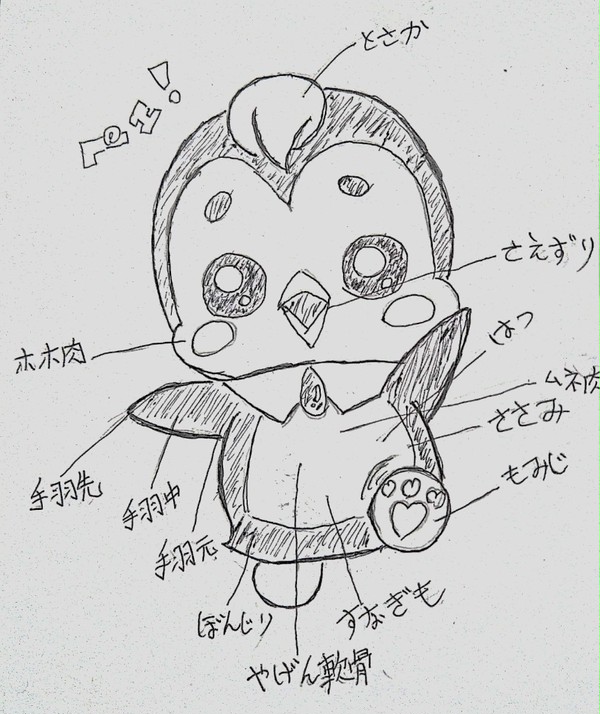 とさか
ぺェ!
さえずり
はつ
ホホ肉
ムネ肉
ささみ
もみじ
手羽先
手羽中
手羽元
ぼんじり
すなぎも
やげん軟骨